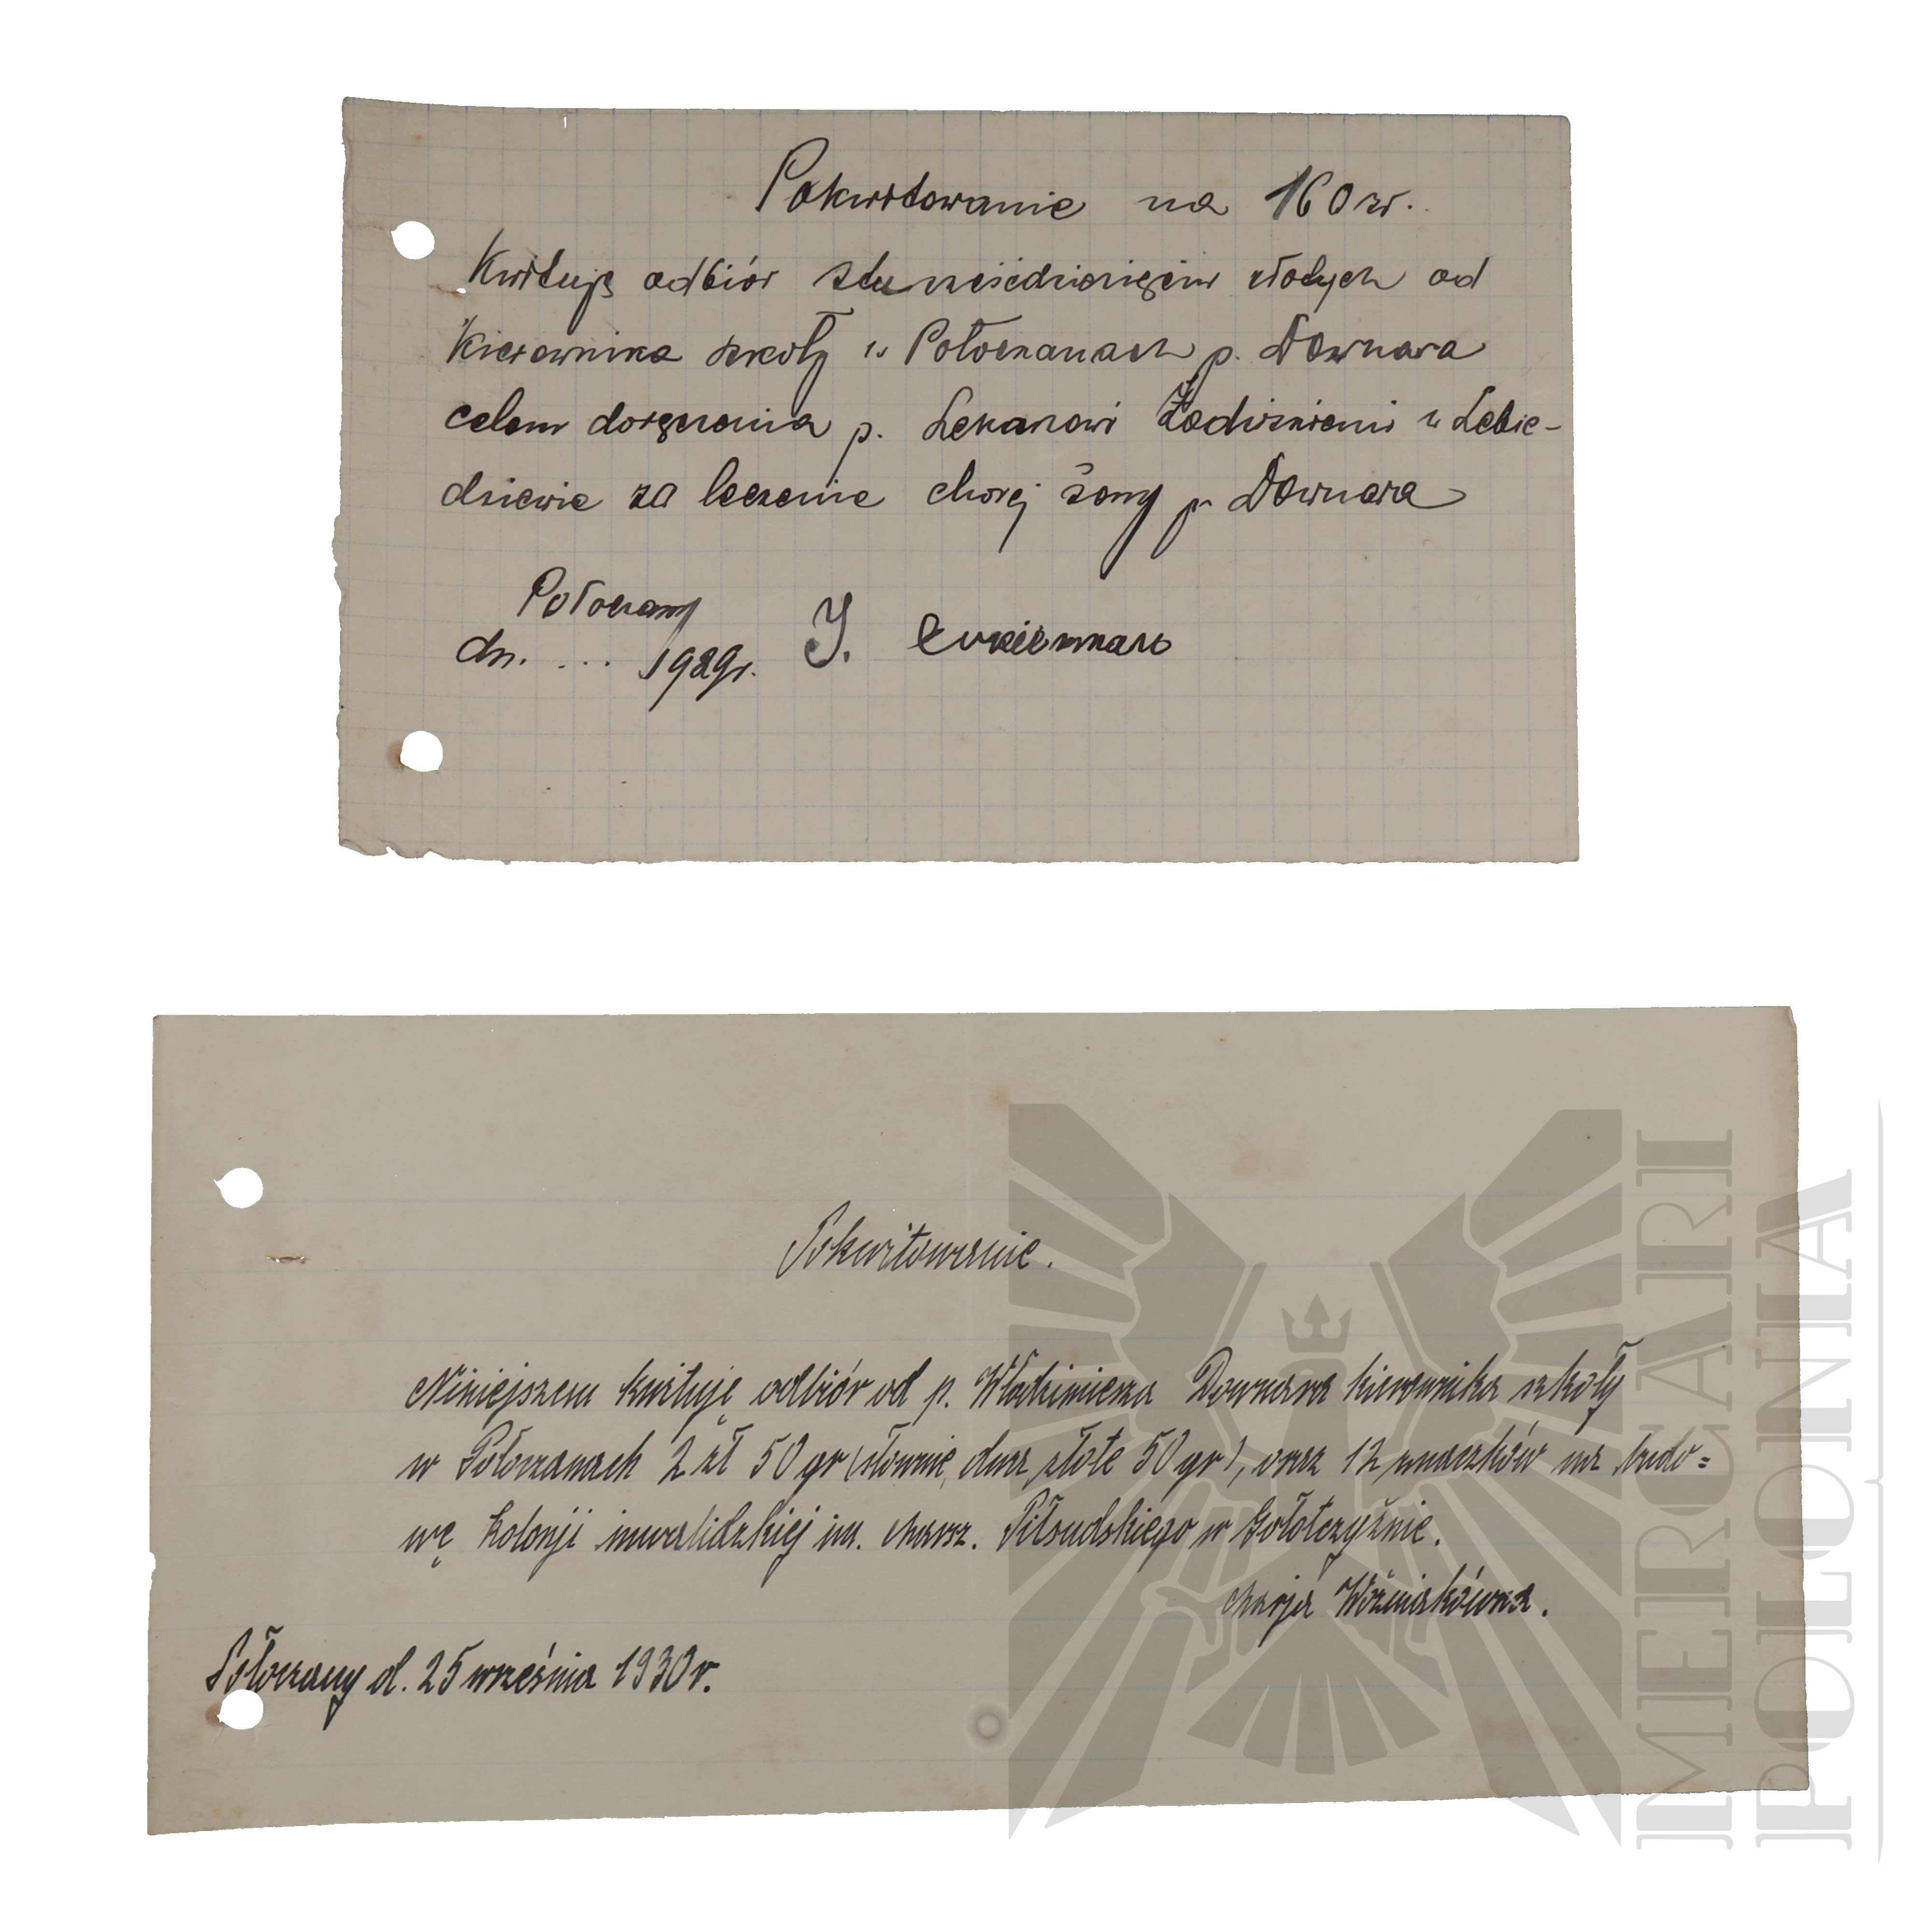 Pokwitowanie na 160 zł.
Kwituję odbiór stu sześćdziesięciu złotych od
Kierownika szkoły w Połoczanach p. Downara
celem doręczenia p. Lekarowi w Lebie-
dziewie za leczenie chorej żony p. Downara
Połoczany
dn. ... 1929r. J.
Pokwitowanie.
Niniejszem kwituję odbiór od p. Włodzimierza Downara kierownika szkoły
w Połoczanach 2 zł 50 gr (słownie, dwa złote 50 gr), oraz 12 znaczków na budo=
wę kolonji inwalidzkiej im. Marsz. Piłsudskiego w Gołotczyźnie.
Marja Woźniakówna.
Połoczany d. 25 września 1930 r.
IMERCARI
POLONIA